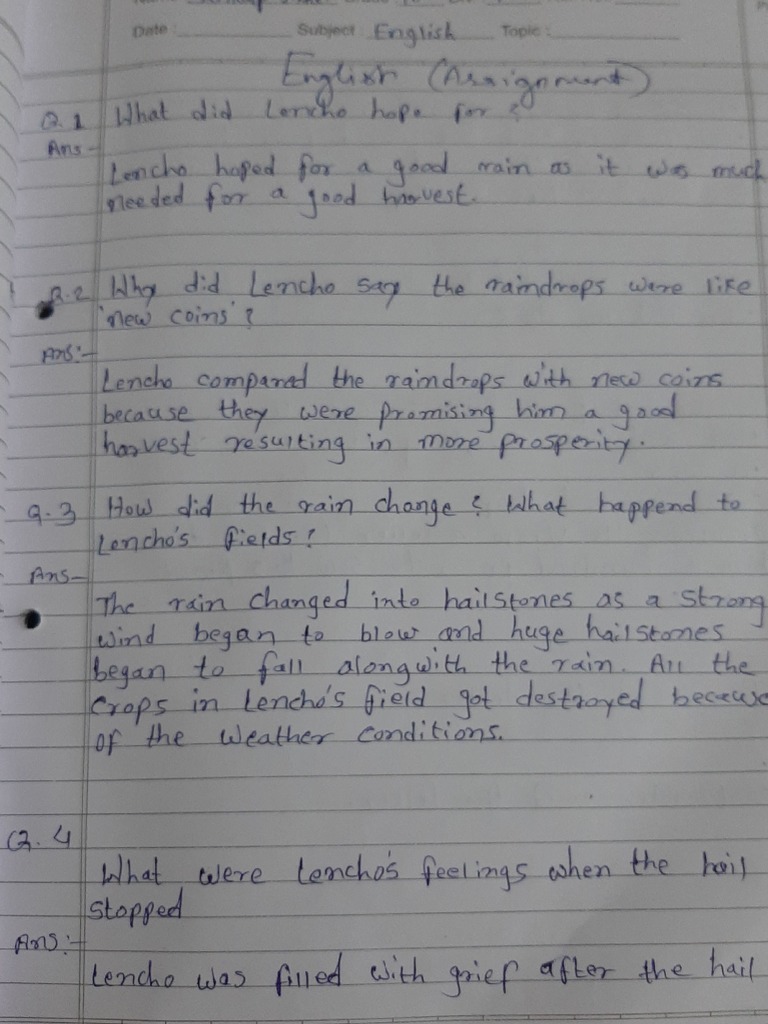 Date: Subject: English Topic:
English (Assignment)
Q.1 What did Lencho hope for ?
Ans-
Lencho hoped for a good rain as it was much
needed for a good harvest.
Q.2 Why did Lencho say the raindrops were like
'new coins'?
Ans:-
Lencho compared the raindrops with new coins
because they were promising him a good
harvest resulting in more prosperity.
Q.3 How did the rain change ? What happend to
Lencho's fields?
Ans-
The rain changed into hailstones as a strong
wind began to blow and huge hailstones
began to fall alongwith the rain. All the
crops in Lencho's field got destroyed because
of the weather conditions.
Q.4
What were Lencho's feelings when the hail
stopped
Ans:-
Lencho was filled with grief after the hail